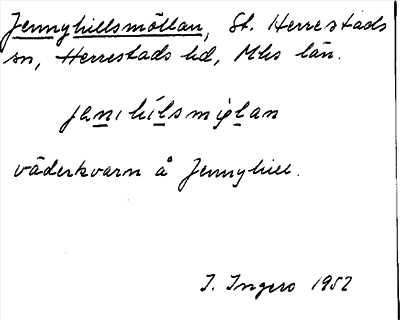 Jennyhillsmöllan, St. Herrestads
sn, Herrestads hd, Mhs län.
väderkvarn å Jennyhill.
I. Ingers 1952